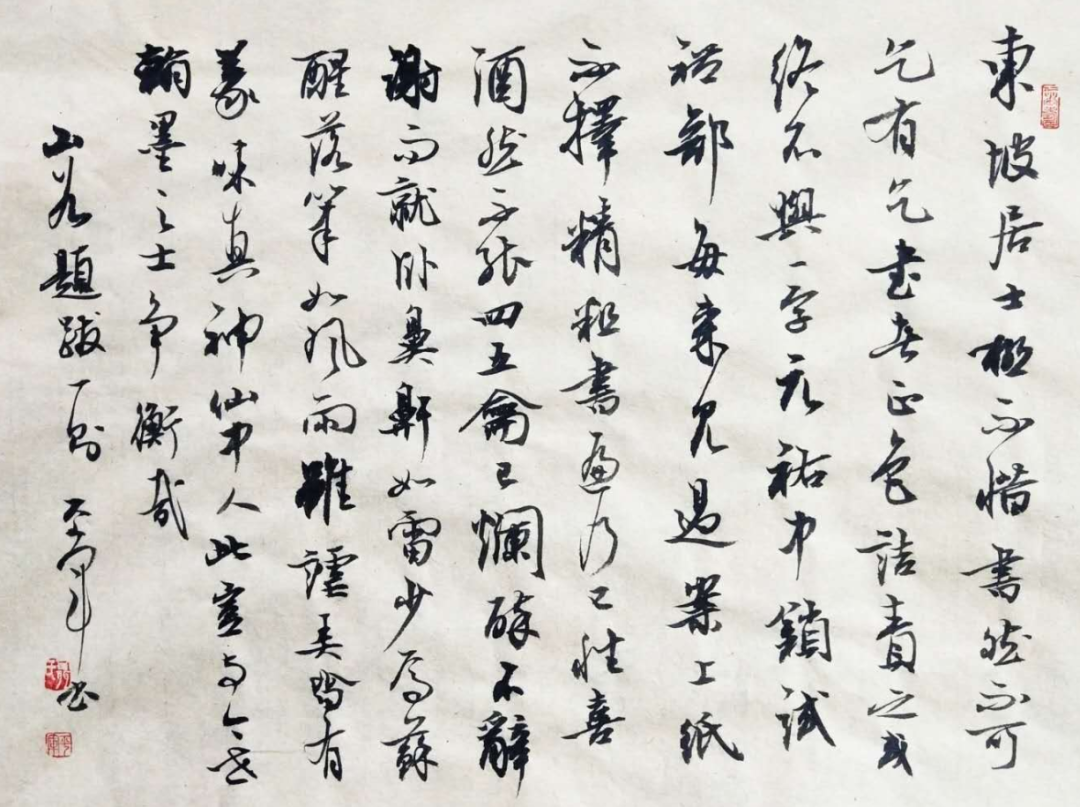 東坡居士極不惜書然不可
乞有乞書者正色詰責之或
終不與一字元祐中鎖試
禮部每來見過案上紙
不擇精粗書遍乃已性喜
酒然不能四五龠已爛醉不辭
謝而就臥鼻鼾如雷少焉蘇
醒落筆如風雨雖謔弄皆有
義味真神仙中人此豈與今世
翰墨之士爭衡哉
山谷題跋一則 書